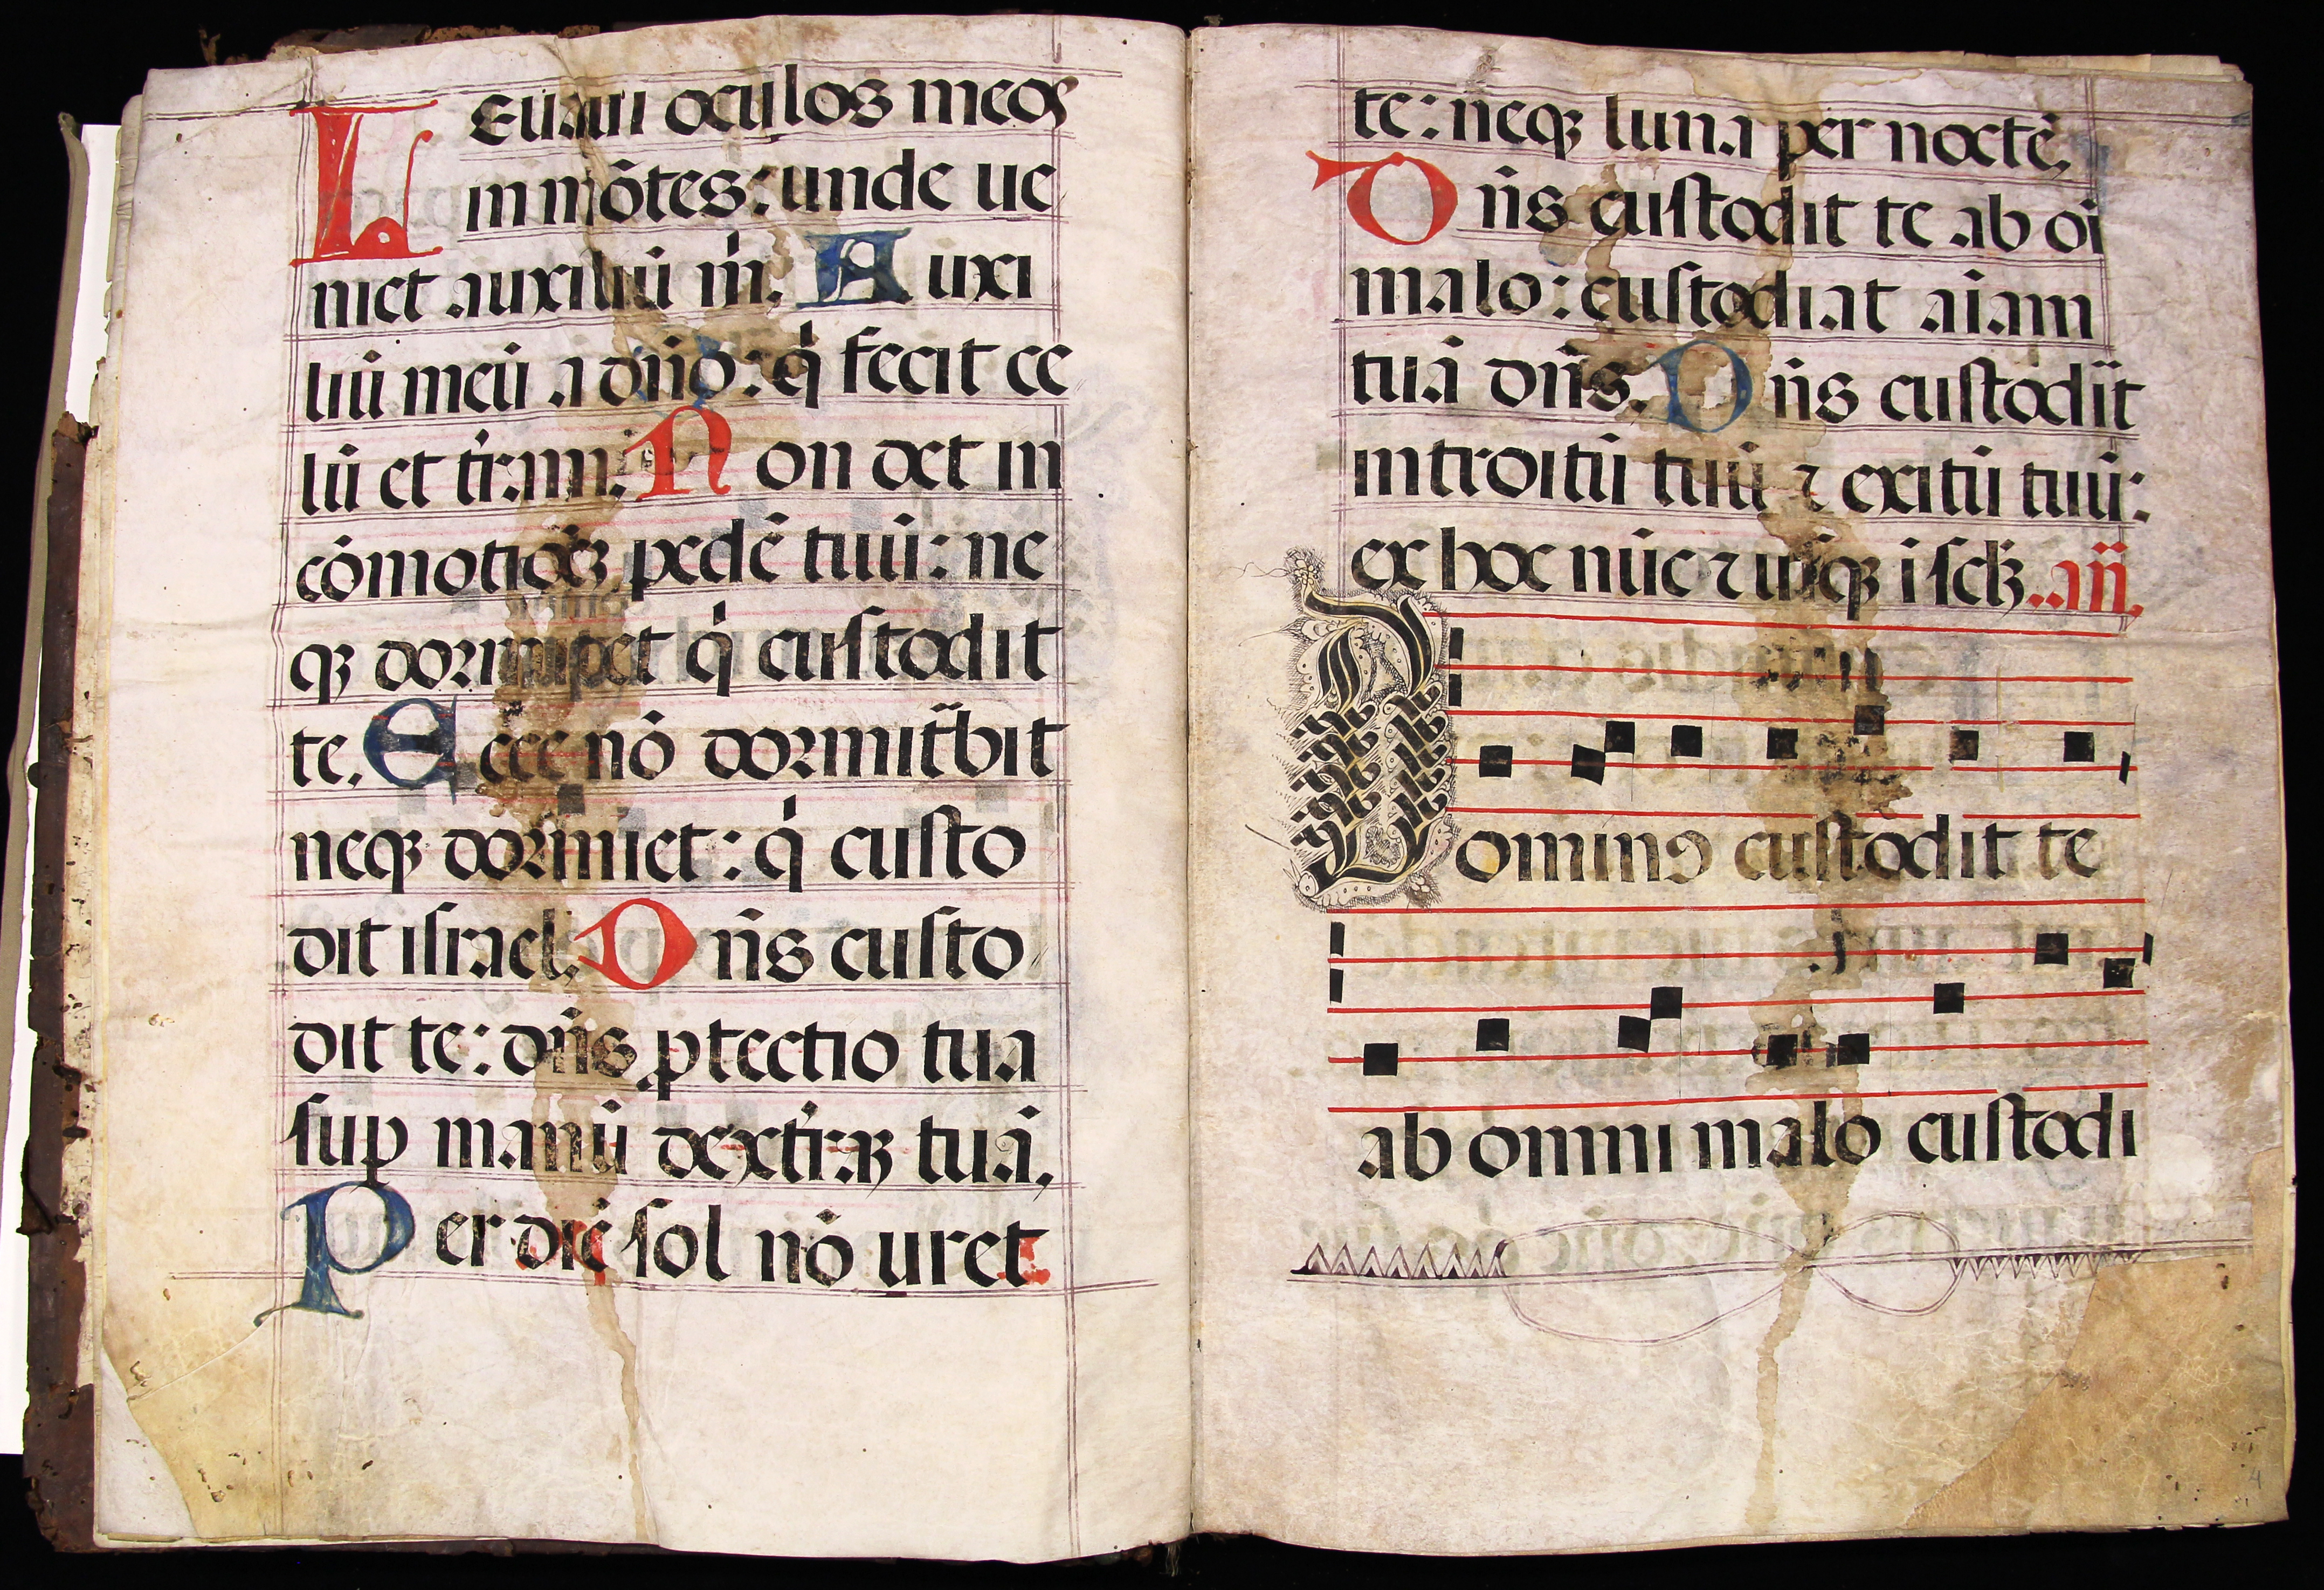 LEuaui oculos meos
in mōtes: unde ue
niet auxiliū m̍. Auxi
liū meū a dn̄o: q̍ fecit ce
lū et tr̄am. Non det in
cōmotiōꝫ pedē tuū: ne
qꝫ dormitet q̍ custodit
te. Ecce nō dormit̄bit
neqꝫ dormiet: q̍ custo
dit israel. Dn̄s custo
dit te: dn̄s ꝓtectio tua
suꝑ manū dextr̄aꝫ tuā.
Per diē sol nō uret
te: neqꝫ luna per noctē.
Dn̄s custodit te ab oī
malo: custodiat aīam
tuā dn̄s. Dn̄s custodīt
introitū tuū ⁊ exitū tuū:
ex hoc nūc ⁊ usqꝫ ī sclꝫ. an̄.
Dominꝰ custodit te
ab omni malo custodi
4